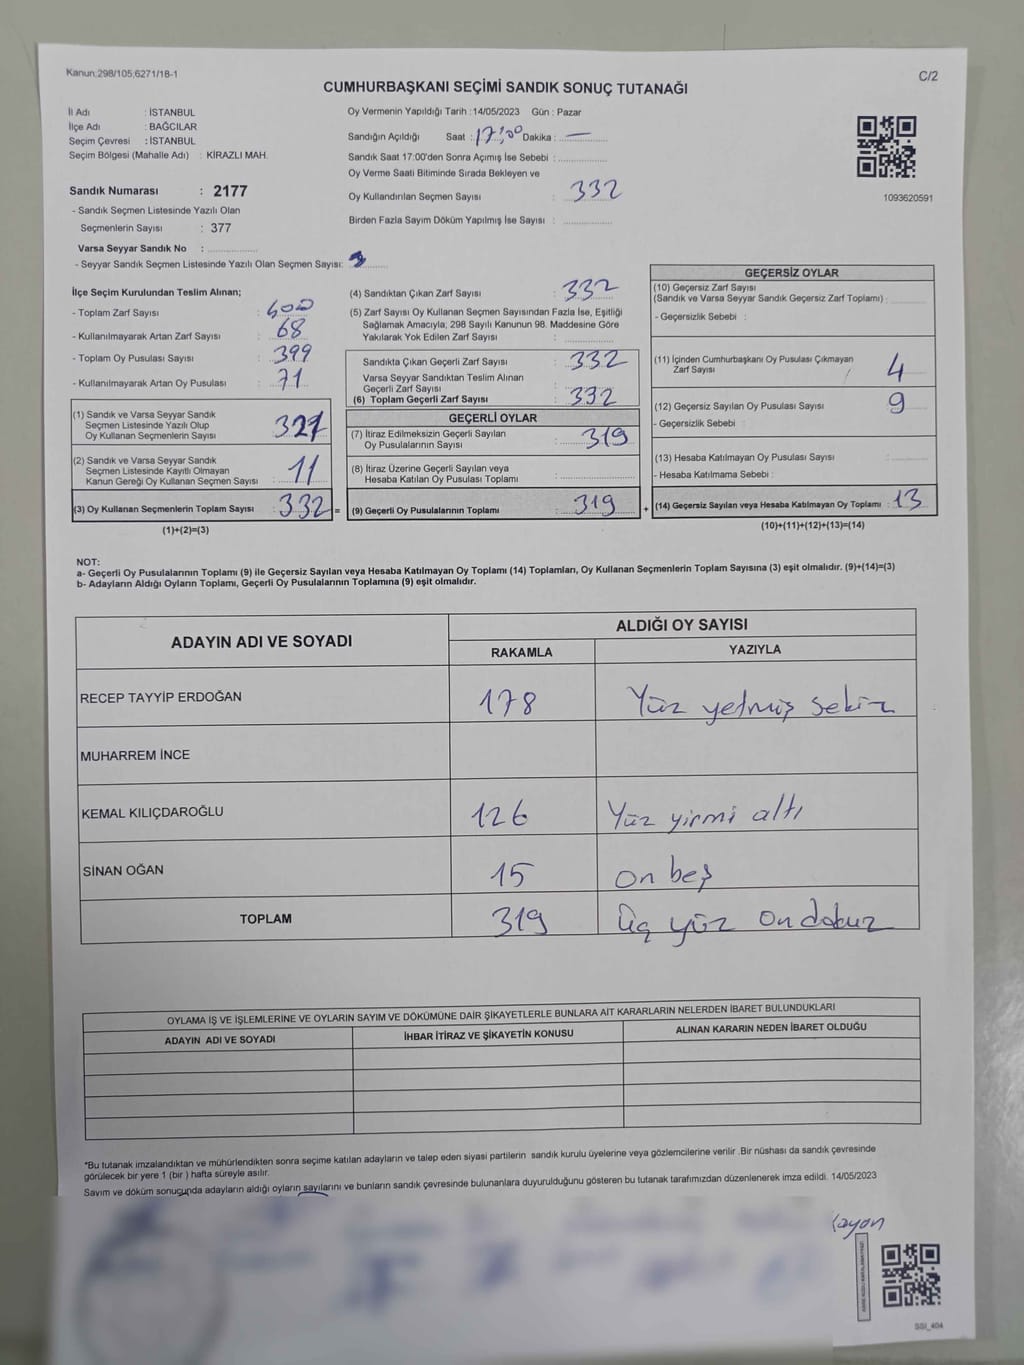 Kanun:298/105;6271/18-1
C/2
CUMHURBAŞKANI SEÇİMİ SANDIK SONUÇ TUTANAĞI
İl Adı : İSTANBUL
İlçe Adı : BAĞCILAR
Seçim Çevresi : İSTANBUL
Seçim Bölgesi (Mahalle Adı) : KİRAZLI MAH.
Sandık Numarası : 2177
- Sandık Seçmen Listesinde Yazılı Olan
Seçmenlerin Sayısı : 377
Varsa Seyyar Sandık No :
- Seyyar Sandık Seçmen Listesinde Yazılı Olan Seçmen Sayısı:
Oy Vermenin Yapıldığı Tarih :14/05/2023 Gün : Pazar
Sandığın Açıldığı Saat : 17:00 Dakika : —
Sandık Saat 17:00'den Sonra Açımış İse Sebebi :
Oy Verme Saati Bitiminde Sırada Bekleyen ve
Oy Kullandırılan Seçmen Sayısı : 332
Birden Fazla Sayım Döküm Yapılmış İse Sayısı :
1093620591
İlçe Seçim Kurulundan Teslim Alınan;
- Toplam Zarf Sayısı : 400
- Kullanılmayarak Artan Zarf Sayısı : 68
- Toplam Oy Pusulası Sayısı : 399
- Kullanılmayarak Artan Oy Pusulası : 71
(1) Sandık ve Varsa Seyyar Sandık
Seçmen Listesinde Yazılı Olup
Oy Kullanan Seçmenlerin Sayısı :
(2) Sandık ve Varsa Seyyar Sandık
Seçmen Listesinde Kayıtlı Olmayan
Kanun Gereği Oy Kullanan Seçmen Sayısı : 11
(3) Oy Kullanan Seçmenlerin Toplam Sayısı : 332 =
(1)+(2)=(3)
(4) Sandıktan Çıkan Zarf Sayısı : 332
(5) Zarf Sayısı Oy Kullanan Seçmen Sayısından Fazla İse, Eşitliği
Sağlamak Amacıyla, 298 Sayılı Kanunun 98. Maddesine Göre
Yakılarak Yok Edilen Zarf Sayısı :
Sandıkta Çıkan Geçerli Zarf Sayısı : 332
Varsa Seyyar Sandıktan Teslim Alınan
Geçerli Zarf Sayısı :
(6) Toplam Geçerli Zarf Sayısı : 332
GEÇERLİ OYLAR
(7) İtiraz Edilmeksizin Geçerli Sayılan
Oy Pusulalarının Sayısı : 319
(8) İtiraz Üzerine Geçerli Sayılan veya
Hesaba Katılan Oy Pusulası Toplamı :
(9) Geçerli Oy Pusulalarının Toplamı : 319 +
GEÇERSİZ OYLAR
(10) Geçersiz Zarf Sayısı
(Sandık ve Varsa Seyyar Sandık Geçersiz Zarf Toplamı) :
- Geçersizlik Sebebi :
(11) İçinden Cumhurbaşkanı Oy Pusulası Çıkmayan
Zarf Sayısı : 4
(12) Geçersiz Sayılan Oy Pusulası Sayısı : 9
- Geçersizlik Sebebi :
(13) Hesaba Katılmayan Oy Pusulası Sayısı :
- Hesaba Katılmama Sebebi :
(14) Geçersiz Sayılan veya Hesaba Katılmayan Oy Toplamı : 13
(10)+(11)+(12)+(13)=(14)
NOT:
a- Geçerli Oy Pusulalarının Toplamı (9) ile Geçersiz Sayılan veya Hesaba Katılmayan Oy Toplamı (14) Toplamları, Oy Kullanan Seçmenlerin Toplam Sayısına (3) eşit olmalıdır. (9)+(14)=(3)
b- Adayların Aldığı Oyların Toplamı, Geçerli Oy Pusulalarının Toplamına (9) eşit olmalıdır.
ADAYIN ADI VE SOYADI
ALDIĞI OY SAYISI
RAKAMLA YAZIYLA
RECEP TAYYİP ERDOĞAN 178 Yüz yetmiş sekiz
MUHARREM İNCE
KEMAL KILIÇDAROĞLU 126 Yüz yirmi altı
SİNAN OĞAN 15 on beş
TOPLAM 319 Üç yüz on dokuz
OYLAMA İŞ VE İŞLEMLERİNE VE OYLARIN SAYIM VE DÖKÜMÜNE DAİR ŞİKAYETLERLE BUNLARA AİT KARARLARIN NELERDEN İBARET BULUNDUKLARI
ADAYIN ADI VE SOYADI İHBAR İTİRAZ VE ŞİKAYETİN KONUSU ALINAN KARARIN NEDEN İBARET OLDUĞU
*Bu tutanak imzalandıktan ve mühürlendikten sonra seçime katılan adayların ve talep eden siyasi partilerin sandık kurulu üyelerine veya gözlemcilerine verilir .Bir nüshası da sandık çevresinde
görülecek bir yere 1 (bir ) hafta süreyle asılır.
Sayım ve döküm sonucunda adayların aldığı oyların sayılarını ve bunların sandık çevresinde bulunanlara duyurulduğunu gösteren bu tutanak tarafımızdan düzenlenerek imza edildi. 14/05/2023